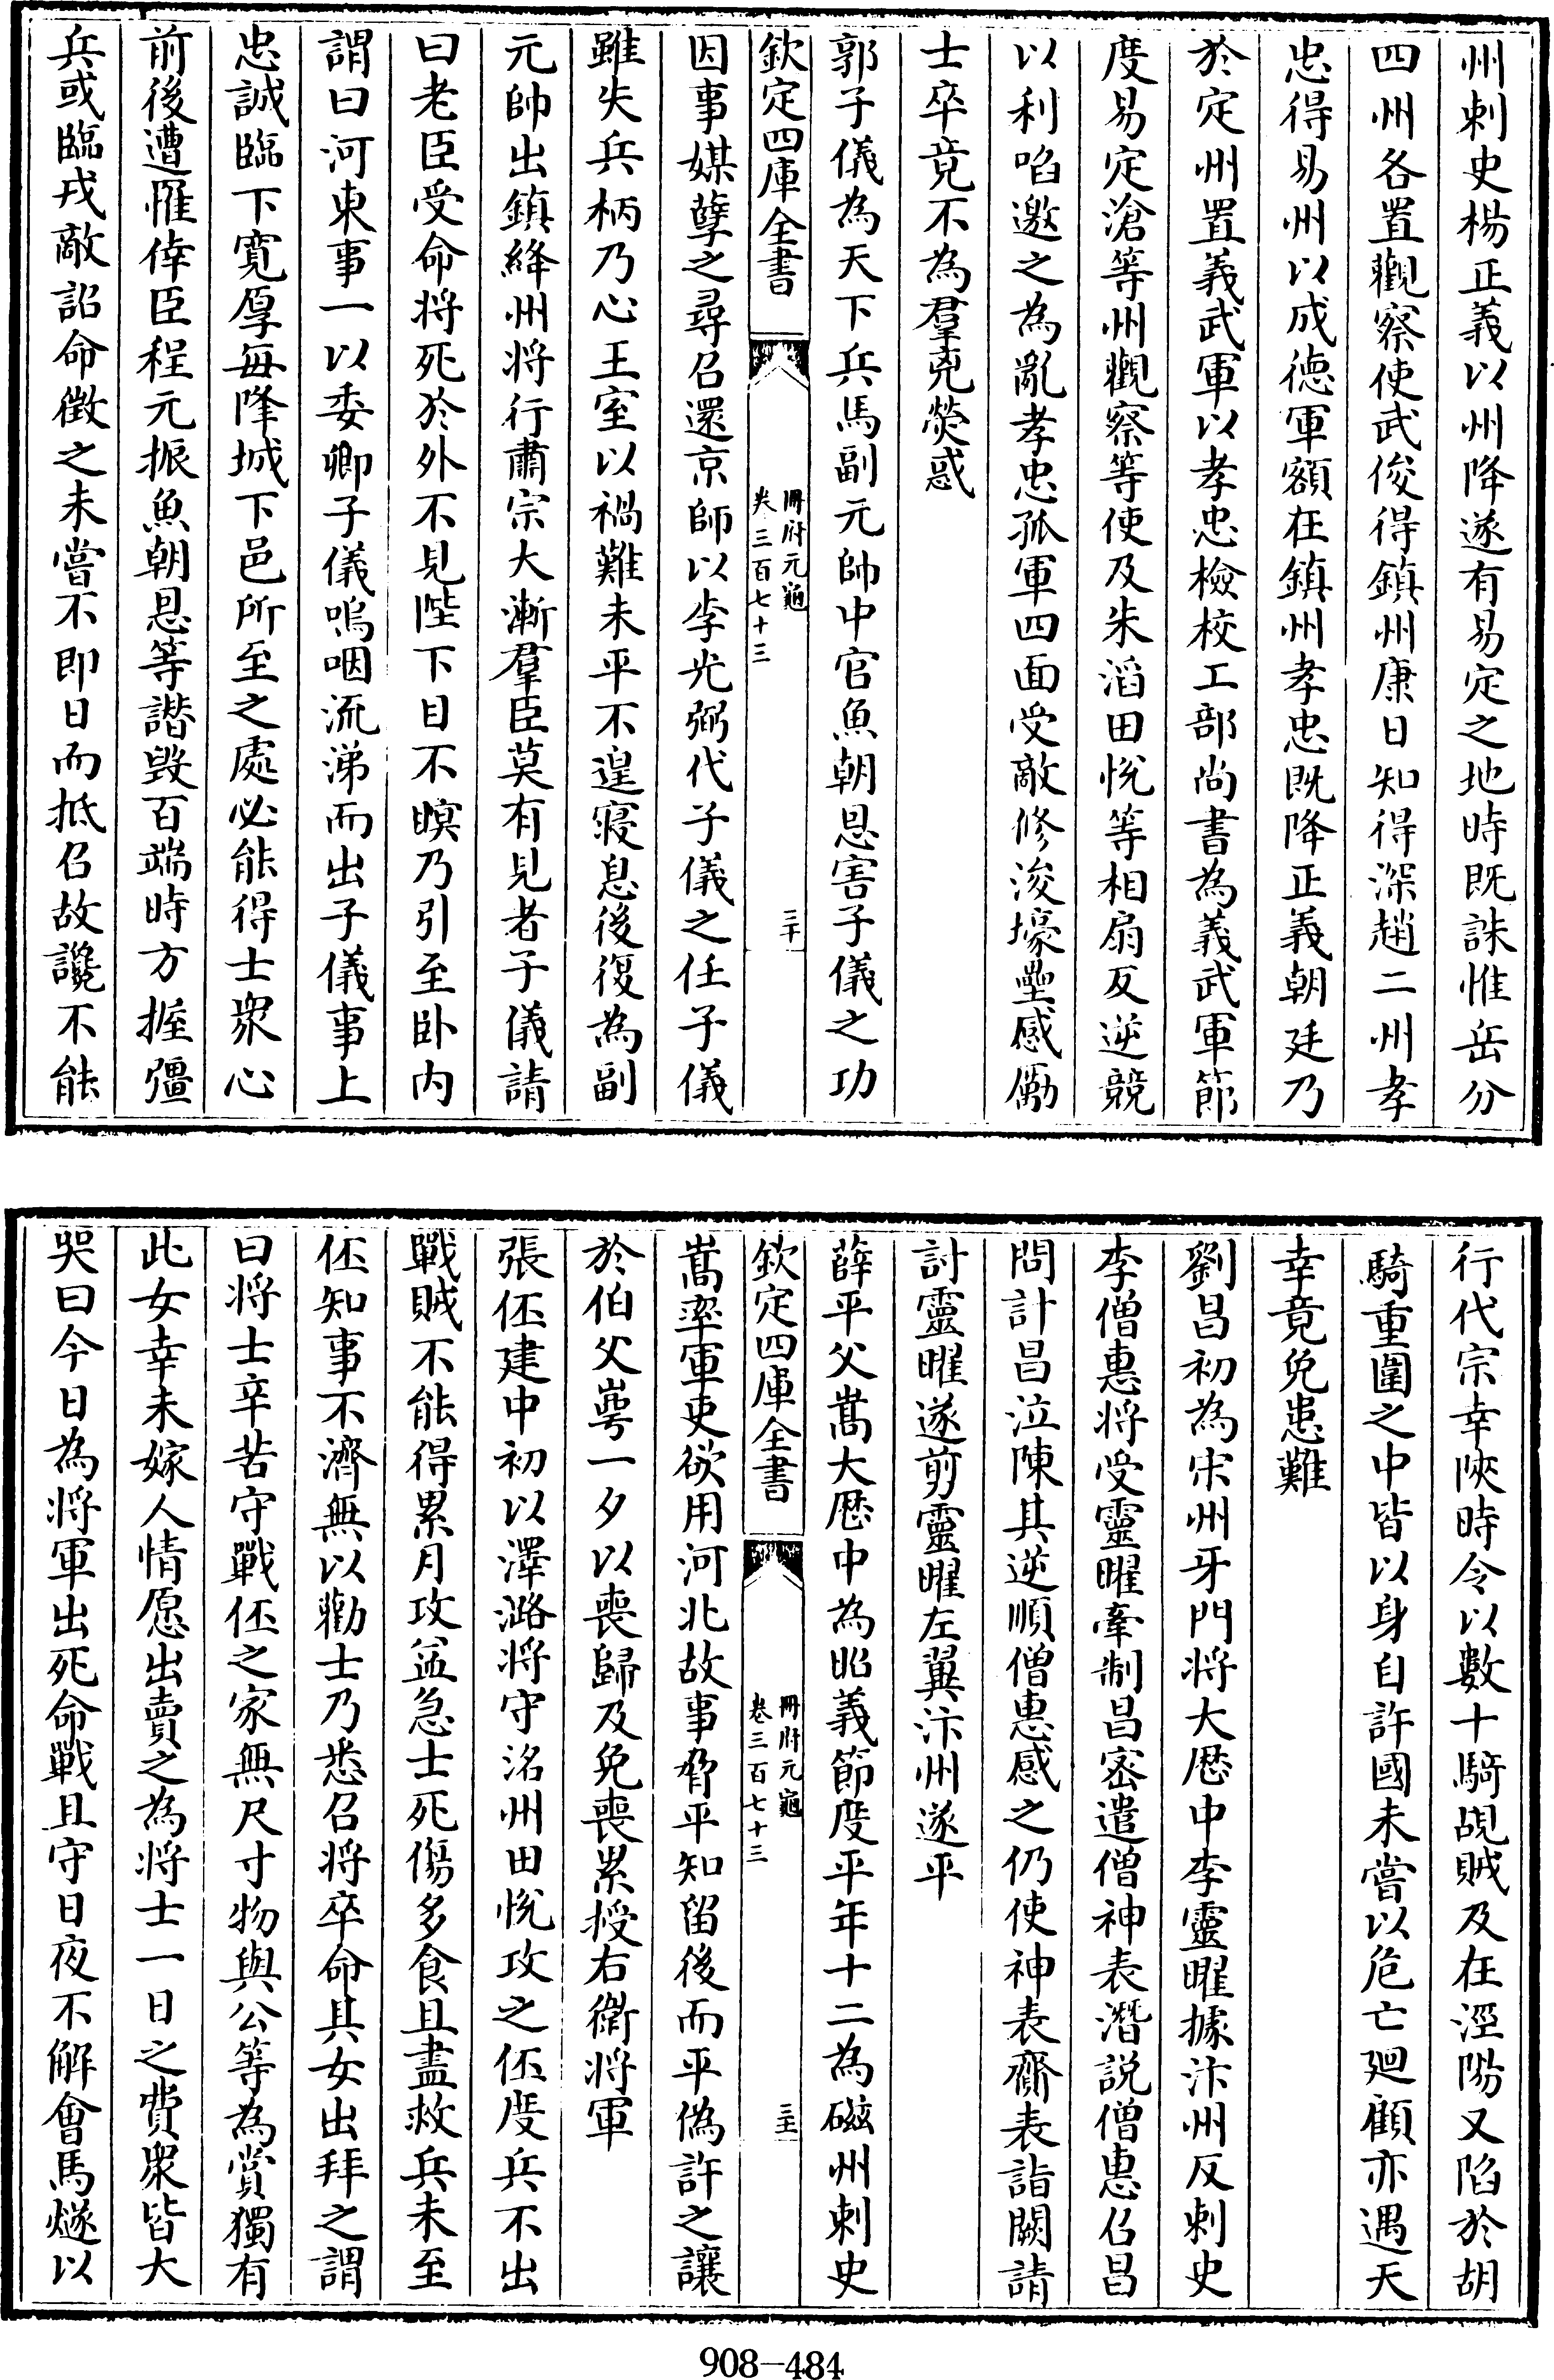 州刺史楊正義以州降遂有易定之地時既誅惟岳分
四州各置觀察使武俊得鎮州康日知得深趙二州孝
忠得易州以成徳軍額在鎮州孝忠既降正義朝廷乃
於定州置義武軍以孝忠檢校工部尚書為義武軍節
度易定滄等州觀察等使及朱滔田悅等相扇反逆競
以利啗邀之為亂孝忠孤軍四面受敵修浚壕壘感勵
士卒竟不為羣兇熒惑
郭子儀為天下兵馬副元帥中官魚朝恩害子儀之功
欽定四庫全書
冊府元龜
卷三百七十三
三十
因事媒孽之尋召還京師以李光弼代子儀之任子儀
雖失兵柄乃心王室以禍難未平不遑寢息後復為副
元帥出鎮絳州将行肅宗大漸羣臣莫有見者子儀請
曰老臣受命将死於外不見陛下目不瞑乃引至卧内
謂曰河東事一以委卿子儀嗚咽流涕而出子儀事上
忠誠臨下寛厚毎降城下邑所至之處必能得士衆心
前後遭罹倖臣程元振魚朝恩等譖毁百端時方握彊
兵或臨戎敵詔命徵之未嘗不即日而抵召故讒不能
行代宗幸陜時令以數十騎覘賊及在涇陽又陷於胡
騎重圍之中皆以身自許國未嘗以危亡廻顧亦遇天
幸竟免患難
劉昌初為宋州牙門将大厯中李靈曜據汴州反刺史
李僧惠将受靈曜牽制昌宻遣僧神表潛説僧惠召昌
問計昌泣陳其逆順僧惠感之仍使神表齎表詣闕請
討靈曜遂剪靈曜左翼汴州遂平
薛平父嵩大厯中為昭義節度平年十二為磁州刺史
欽定四庫全書
冊府元龜
卷三百七十三
三十一
嵩率軍吏欲用河北故事脅平知留後而平偽許之讓
於伯父㟧一夕以喪歸及免喪累授右衛将軍
張伾建中初以澤潞将守洺州田悅攻之伾度兵不出
戰賊不能得累月攻益急士死傷多食且盡救兵未至
伾知事不濟無以勸士乃悉召将卒命其女出拜之謂
曰将士辛苦守戰伾之家無尺寸物與公等為賞獨有
此女幸未嫁人情愿出賣之為将士一日之費衆皆大
哭曰今日為将軍出死命戰且守日夜不解會馬燧以
908-484